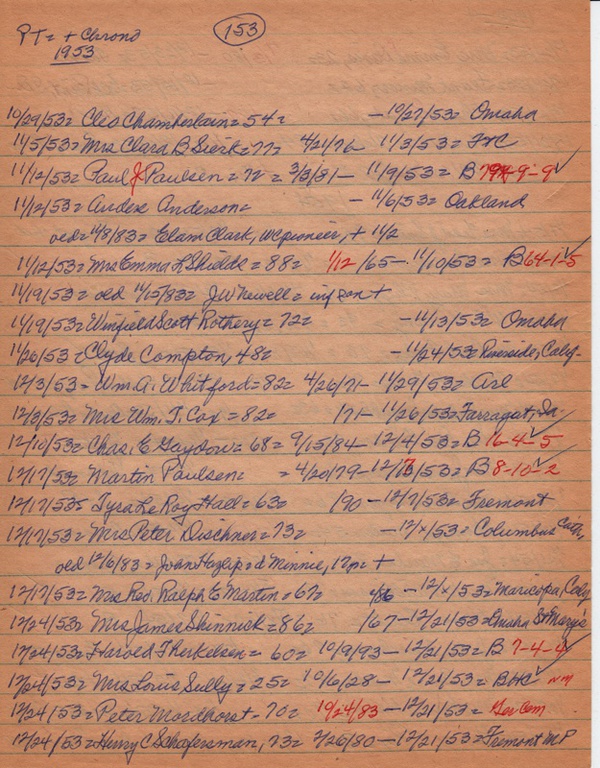 PT= + Chrono
153
1953
10/29/53= Cleo Chamberlain= 54= — 10/27/53= Omaha
11/5/53= Mrs Clara B Sierk= 77= 4/21/76— 11/3/53= FxC
11/12/53= Paul J Paulsen= 72= 3/3/81— 11/9/53= B 9-9 ✓
11/12/53= Andex Anderson= — 11/6/53= Oakland
old= 11/8/83= Elam Clark, WC pioneer, + 11/2
11/12/53= Mrs Emma F Shields= 88= 1/12/65— 11/10/53= B 64-1-5 ✓
11/19/53= old 11/15/83= J W Newell= inf son +
11/19/53= Winfield Scott Rothery= 72= — 11/13/53= Omaha
11/26/53= Clyde Compton, 48= — 11/24/53= Riverside, Calif-
12/3/53= Wm. A. Whitford= 82= 4/26/71— 11/29/53= Arl
12/3/53= Mrs Wm. T. Cox= 82= /71— 11/26/53= Farragut, Ia.
12/10/53= Chas. E Gaydou= 68= 9/15/84— 12/4/53= B 16-4-5 ✓
12/17/53= Martin Paulsen= = 4/20/79— 12/13/53= B 8-10-2 ✓
12/17/53= Tyra Le Roy Hall= 63= /90 — 12/7/53= Fremont
12/17/53= Mrs Peter Dischner= 73= — 12/x/53= Columbus Cath,
old 12/6/83= Joan Hazlip= d Minnie, 17m +
12/17/53= Mrs Rev. Ralph E Martin= 67= /86 — 12/x/53= Maricopa, Calif
12/24/53= Mrs James Skinnick= 86= /67— 12/21/53= Omaha St Mary's
12/24/53= Harold Therkelsen= 60= 10/9/93— 12/21/53= B 7-4-4 ✓
12/24/53= Mrs Louis Sully= 25= 10/6/28— 12/21/53= BHC ✓ nm
12/24/53= Peter Mordhorst- 70= 10/24/83 — 12/21/53= Ger Cem
12/24/53= Henry C Schafersman, 73= 2/26/80— 12/21/53= Fremont MP